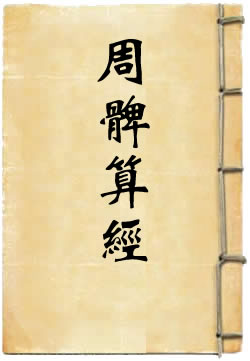 周髀算經